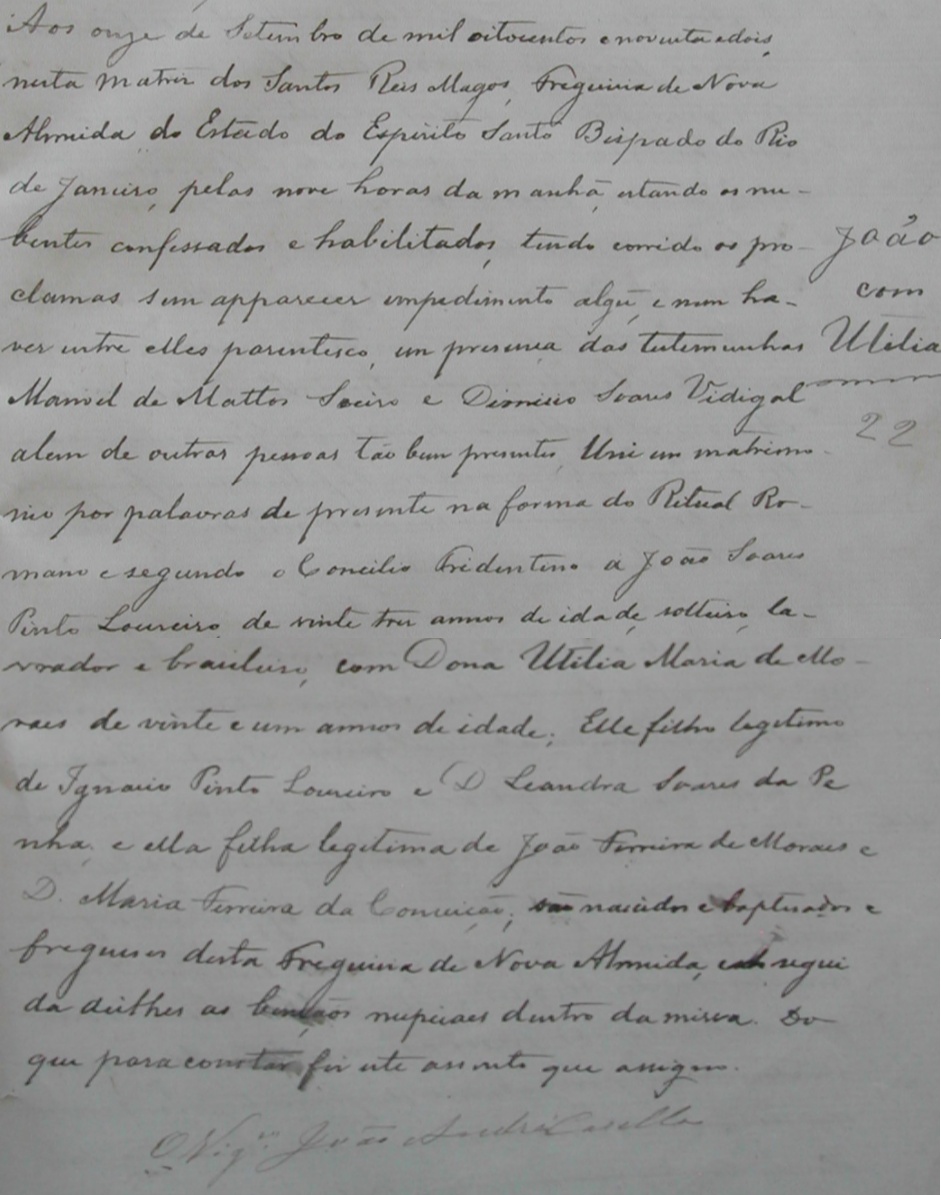 Aos onze de Setembro de mil oitocentos e noventa e dois,
nesta matriz dos Santos Reis Magos, Freguizia de Nova
Almeida do Estado do Espirito Santo Bispado do Rio
de Janeiro, pelas nove horas da manhã, estando os nu-
bentes confessados e habilitados, tendo corrido os pro-
clamas sem apparecer impedimento algũ, e nem ha-
ver entre elles parentesco, em presença das testemunhas
Manoel de Mattos Soeiro e Dionisio Soares Vidigal
alem de outras pessoas tão bem presentes, Uni em matrimo-
nio por palavras de presente na forma do Ritual Ro-
mano e segundo o Concilio Tridentino a João Soares
Pinto Loureiro de vinte tres annos de idade, solteiro, la-
vrador e brasileiro, com Dona Utilia Maria de Mo-
raes de vinte e um annos de idade; Elle filho legitimo
de Ignacio Pinto Loureiro e D Leandra Soares da Pe
nha, e ella filha legitima de João Ferreira de Moraes e
D. Maria Ferreira da Conceição; são nascidos e baptisados e
fregueses desta Freguizia de Nova Almeida, em segui
da deilhes as bençãos nupciaes dentro da missa. Do
que para constar fiz este assento que assigno.
O Vigro João André Casella
João
com
Utilia
22